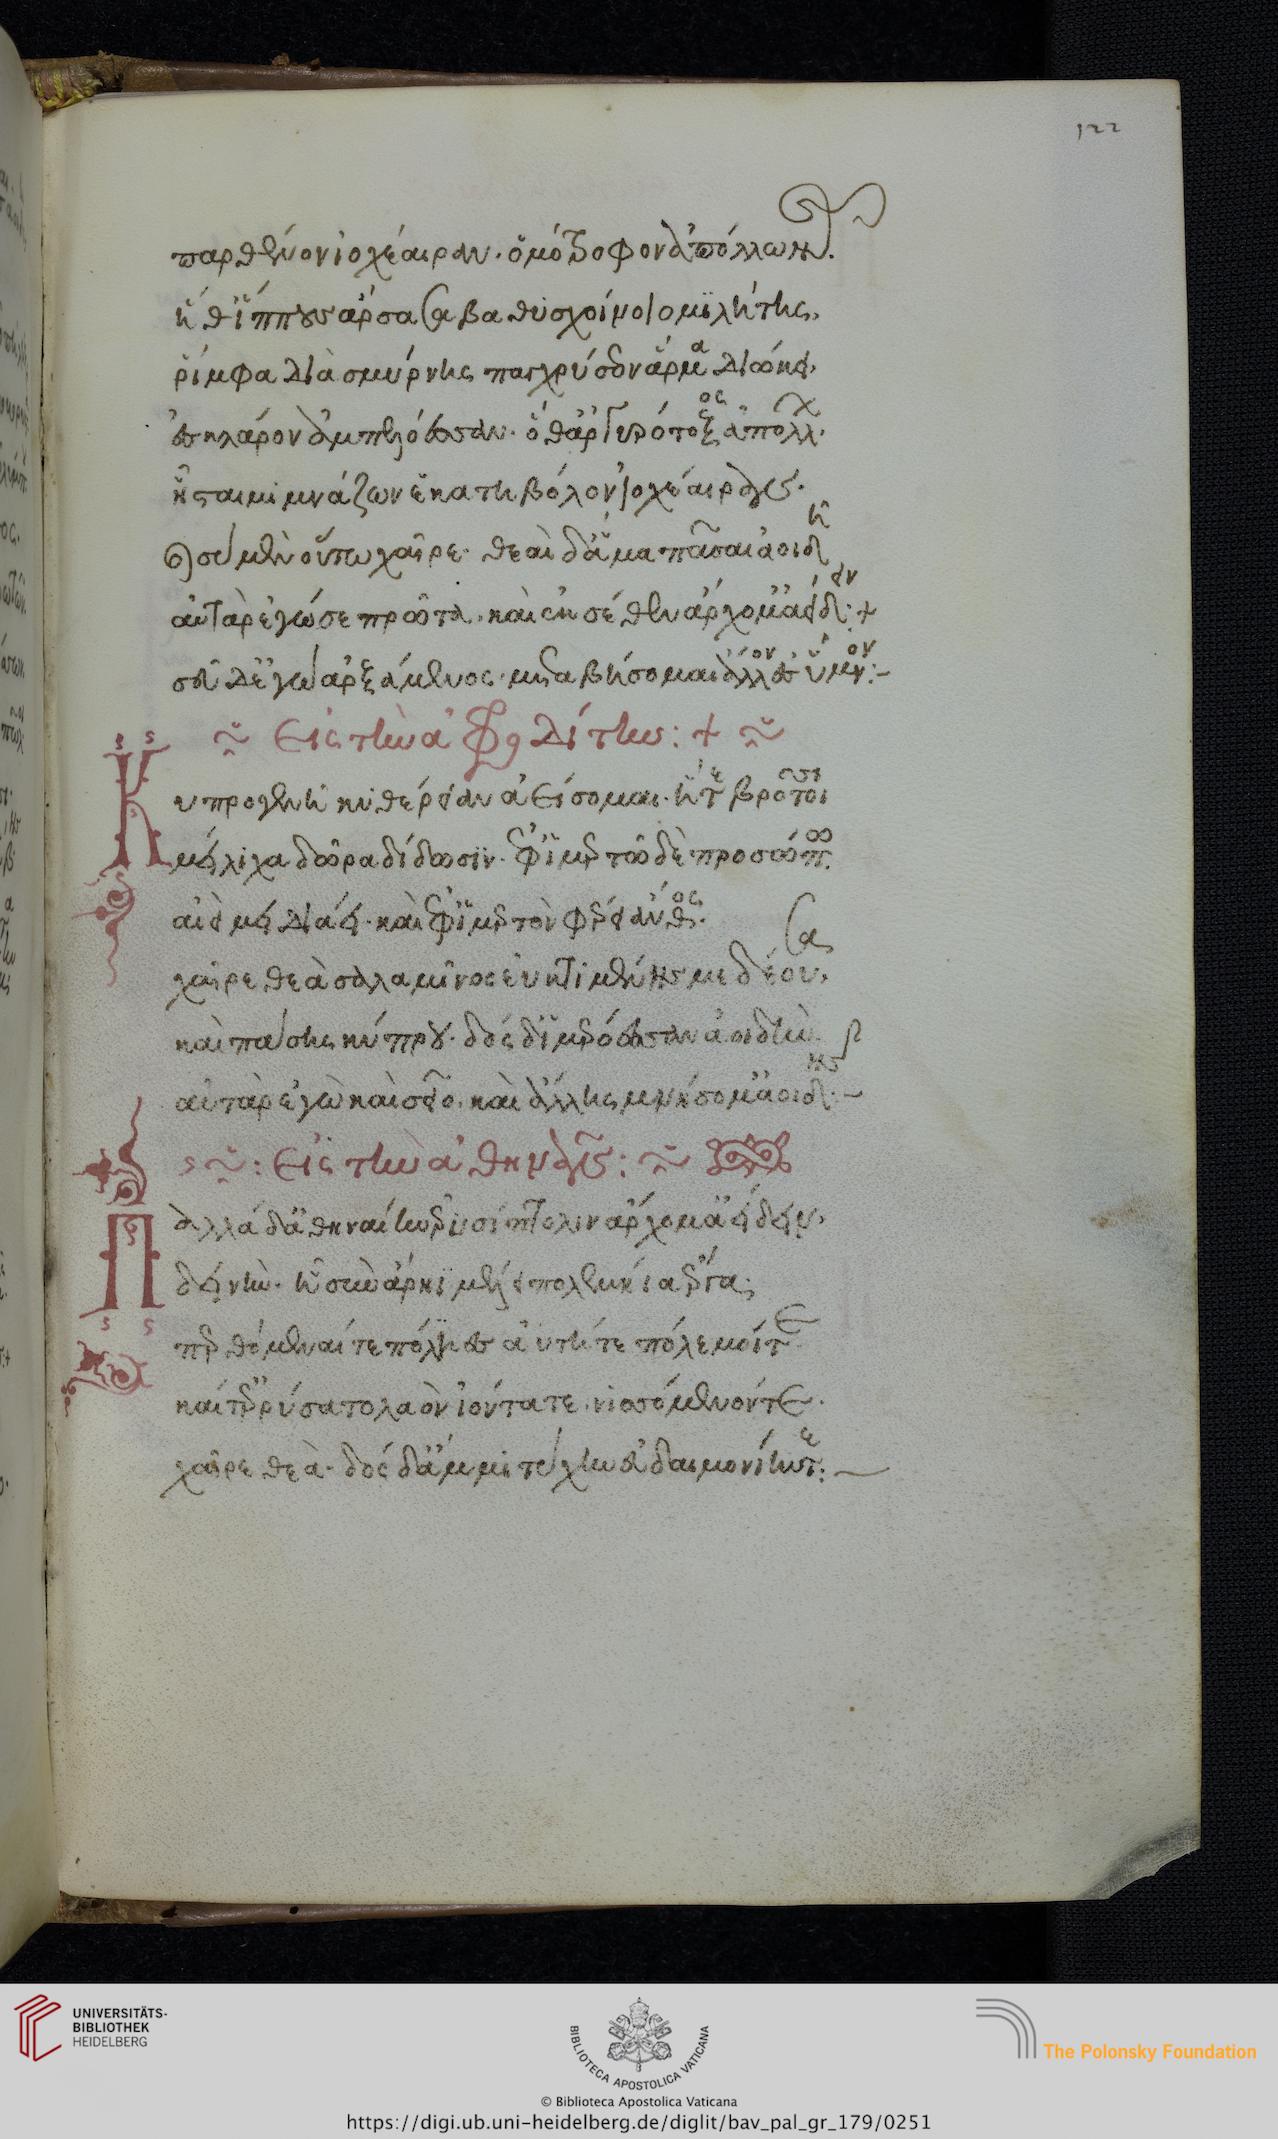 122
παρθένον ἰοχέαιραν. ὁμότροφον ἀπόλλωνος.
ἥ θ' ἵππους ἄρσασα βαθυσχοίνοιο μϊλήτης,
ῥίμφα διὰ σμύρνης παγχρύσεον ἅρμα διώκει,
ἐς κλάρον ἀμπελόεσσαν. ὅθ' ἀργυρότοξος ἀπόλλων.
ἧσται μιμνάζων ἑκατηβόλον ἰοχέαιραν.
σὺ μὲν οὕτω χαῖρε. θεαὶ δ' ἅμα πᾶσαι ἀοιδῇ
αὐτὰρ ἐγώ σε πρῶτα. καὶ ἐκ σέθεν ἄρχομ' ἀείδειν:+
σεῦ δ' ἐγὼ ἀρξάμενος. μεταβήσομαι ἄλλον ἐς ὕμνον:-
Εἰς τὴν ἀφροδίτην:+
Κυπρογενῆ κυθέρειαν ἀείσομαι. ἥτε βροτοῖσι
μείλιχα δῶρα δίδωσϊν. ἐφ' ἱμερτῷ δὲ προσώπω
αἰεὶ μειδιάει. καὶ ἐφ' ἱμερτὸν φέρει ἄνθος.
χαῖρε θεὰ σαλαμῖνος ἐϋκτιμένης μεδέουσα,
καὶ πάσης κύπρου. δὸς δ' ἱμερόεσσαν ἀοιδὴν.
αὐτὰρ ἐγὼ καὶ σεῖο. καὶ ἄλλης μνήσομ' ἀοιδῆς:-
Εἰς τὴν ἀθηνᾶν:
Παλλάδ' ἀθηναίην ἐρυσίπτολιν ἄρχομ' ἀείδειν,
δεινὴν. ᾗ σὺν ἄρηϊ μέλει πολεμήϊα ἔργα;
περθόμεναί τε πόληες ἀϋτή τε πόλεμοί τε.
καί τ' ἐρρύσατο λαὸν ἰόντα τε νισόμενόν τε.
χαῖρε θεὰ. δὸς δ' ἄμμι τύχην εὐδαιμονίην τε:
UNIVERSITÄTS-
BIBLIOTHEK
HEIDELBERG
BIBLIOTECA APOSTOLICA VATICANA
© Biblioteca Apostolica Vaticana
The Polonsky Foundation
https://digi.ub.uni-heidelberg.de/diglit/bav_pal_gr_179/0251